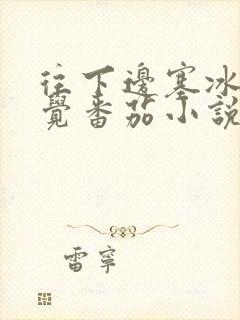 往下邊塞冰
覺番茄小說
雷寧